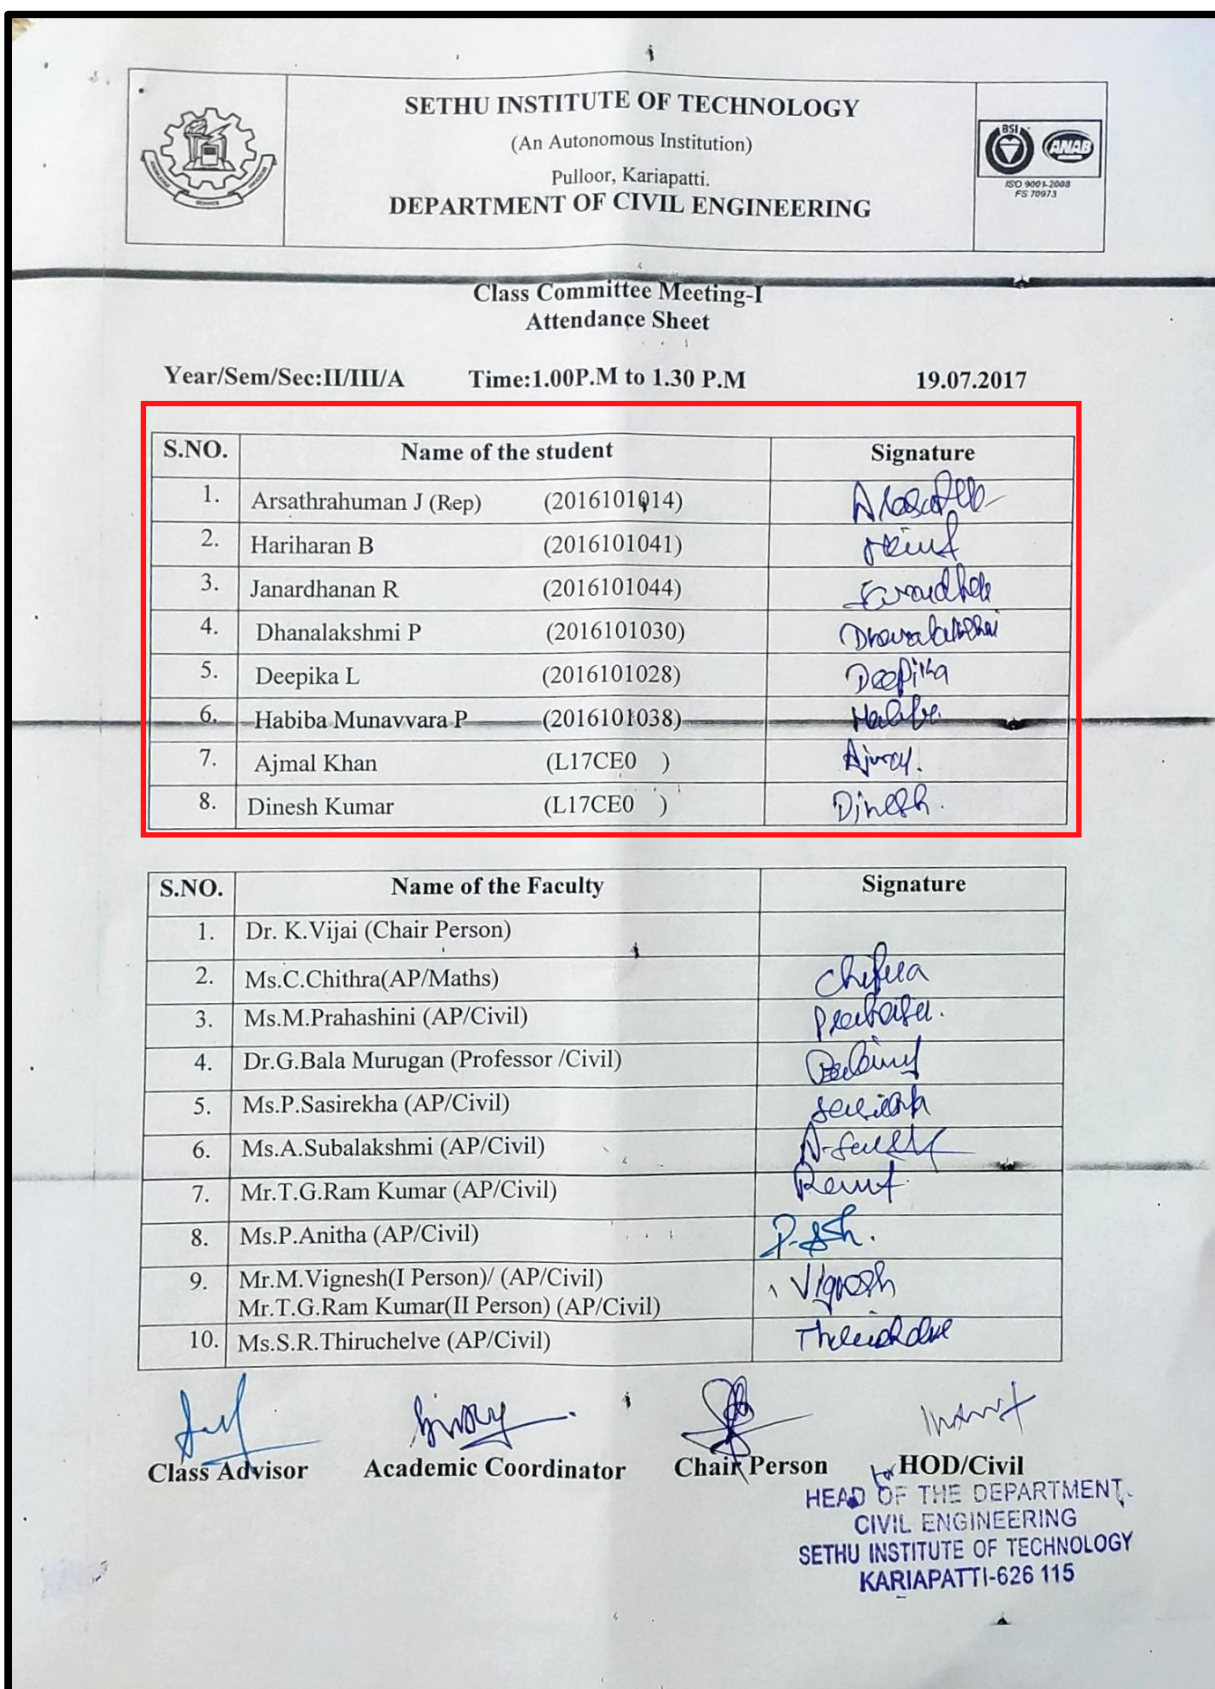 SETHU INSTITUTE OF TECHNOLOGY
(An Autonomous Institution)
Pulloor, Kariapatti.
DEPARTMENT OF CIVIL ENGINEERING
BSI ANAB
ISO 9001-2008
FS 70973
Class Committee Meeting-I
Attendance Sheet
Year/Sem/Sec:II/III/A Time:1.00P.M to 1.30 P.M 19.07.2017
S.NO. Name of the student Signature
1. Arsathrahuman J (Rep) (2016101014)
2. Hariharan B (2016101041)
3. Janardhanan R (2016101044)
4. Dhanalakshmi P (2016101030)
5. Deepika L (2016101028) Deepika
6. Habiba Munavvara P (2016101038)
7. Ajmal Khan (L17CE0 )
8. Dinesh Kumar (L17CE0 ) Dinesh.
S.NO. Name of the Faculty Signature
1. Dr. K.Vijai (Chair Person)
2. Ms.C.Chithra(AP/Maths)
3. Ms.M.Prahashini (AP/Civil)
4. Dr.G.Bala Murugan (Professor /Civil)
5. Ms.P.Sasirekha (AP/Civil)
6. Ms.A.Subalakshmi (AP/Civil)
7. Mr.T.G.Ram Kumar (AP/Civil)
8. Ms.P.Anitha (AP/Civil)
9. Mr.M.Vignesh(I Person)/ (AP/Civil) Vignesh
Mr.T.G.Ram Kumar(II Person) (AP/Civil)
10. Ms.S.R.Thiruchelve (AP/Civil)
Class Advisor Academic Coordinator Chair Person for HOD/Civil
HEAD OF THE DEPARTMENT.
CIVIL ENGINEERING
SETHU INSTITUTE OF TECHNOLOGY
KARIAPATTI-626 115